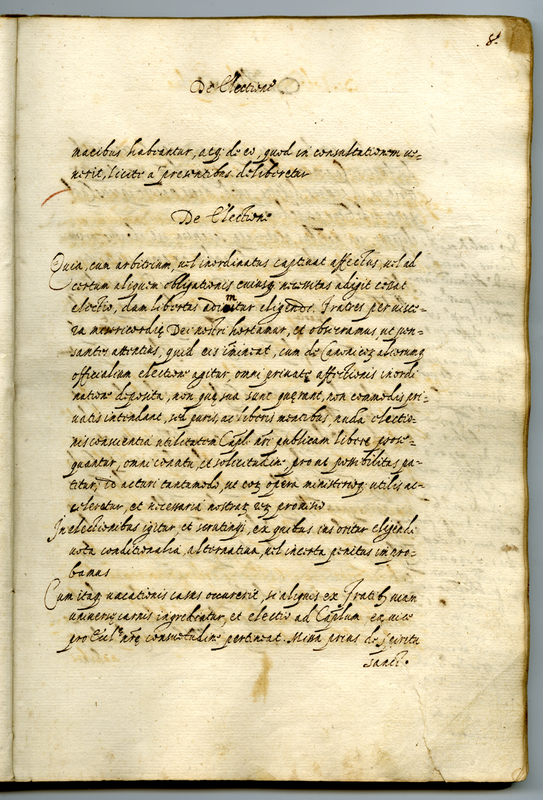 .8.
De Electione
macibus habeantur, atq; de eo, quod in consultationem ue=
nerit, licite a presentibus deliberetur
De Electione
Quia, cum arbitrium, uel inordinatus captiuat affectus, uel ad
certum aliquem obligationis cuiusq; necessitas adigit cessat
electio, dum libertas adimitur eligendi. Fratres per uisce=
ra misericordię Dei nostri hortamur, et obsecramus, ut pen=
santes attentius, quid eis imineat, cum de Canonicor. aliorumq;
officialium electione agitur, omni priuatę affectionis inordi
natione deposita, non quę sua sunt quęrant, non commodis pri=
uatis intendant, sed puris, ac liberis mentibus, nuda electio=
nis conscientia utilitatem Capli nri publicam libere prose=
quantur, omni conatu, et solicitudine, pro ut possibilitas pa=
titur, id acturi tantumodo, ut eor. opera ministerioq; utilis ac=
celeretur, et necessaria nostrar. rer. promisio
In electionibus igitur, et scrutinijs, ex quibus ius oritur eligendi
uota conditionalia, alternatiua, uel incerta penitus impro=
bamus
Cum itaq; uacationis casus occurerit, si aliquis ex Fratribus uiam
uniuersę carnis ingrediatur, et electio ad Caplum, ex uice
pro Eccl.ę nrę consuetudine pertineat. Missa prius de spiritu
sancto